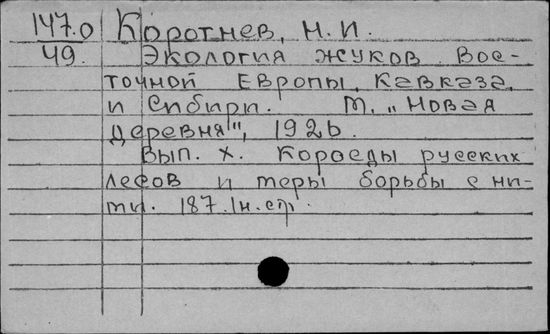 147.0 Коротнев, Н. И.
49. Экология жуков Вос-
точной Европы, Кавказа,
и Сибири. М. „Новая
деревня", 1926.
Вып. X. Короеды русских
лесов и меры борьбы с ни-
ми. 187.1н.ср.